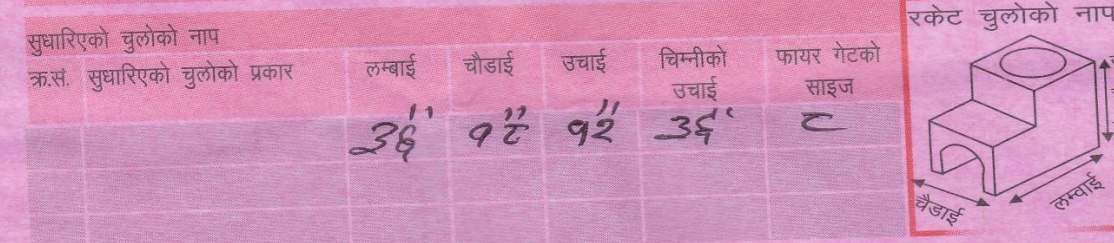 सुधारिएको चुलोको नाप
क्र.सं. सुधारिएको चुलोको प्रकार लम्बाई चौडाई उचाई चिम्नीको उचाई फायर गेटको साइज
३६" १८" १२" ३६" ८
रकेट चुलोको नाप
चैडाई
लम्वाई